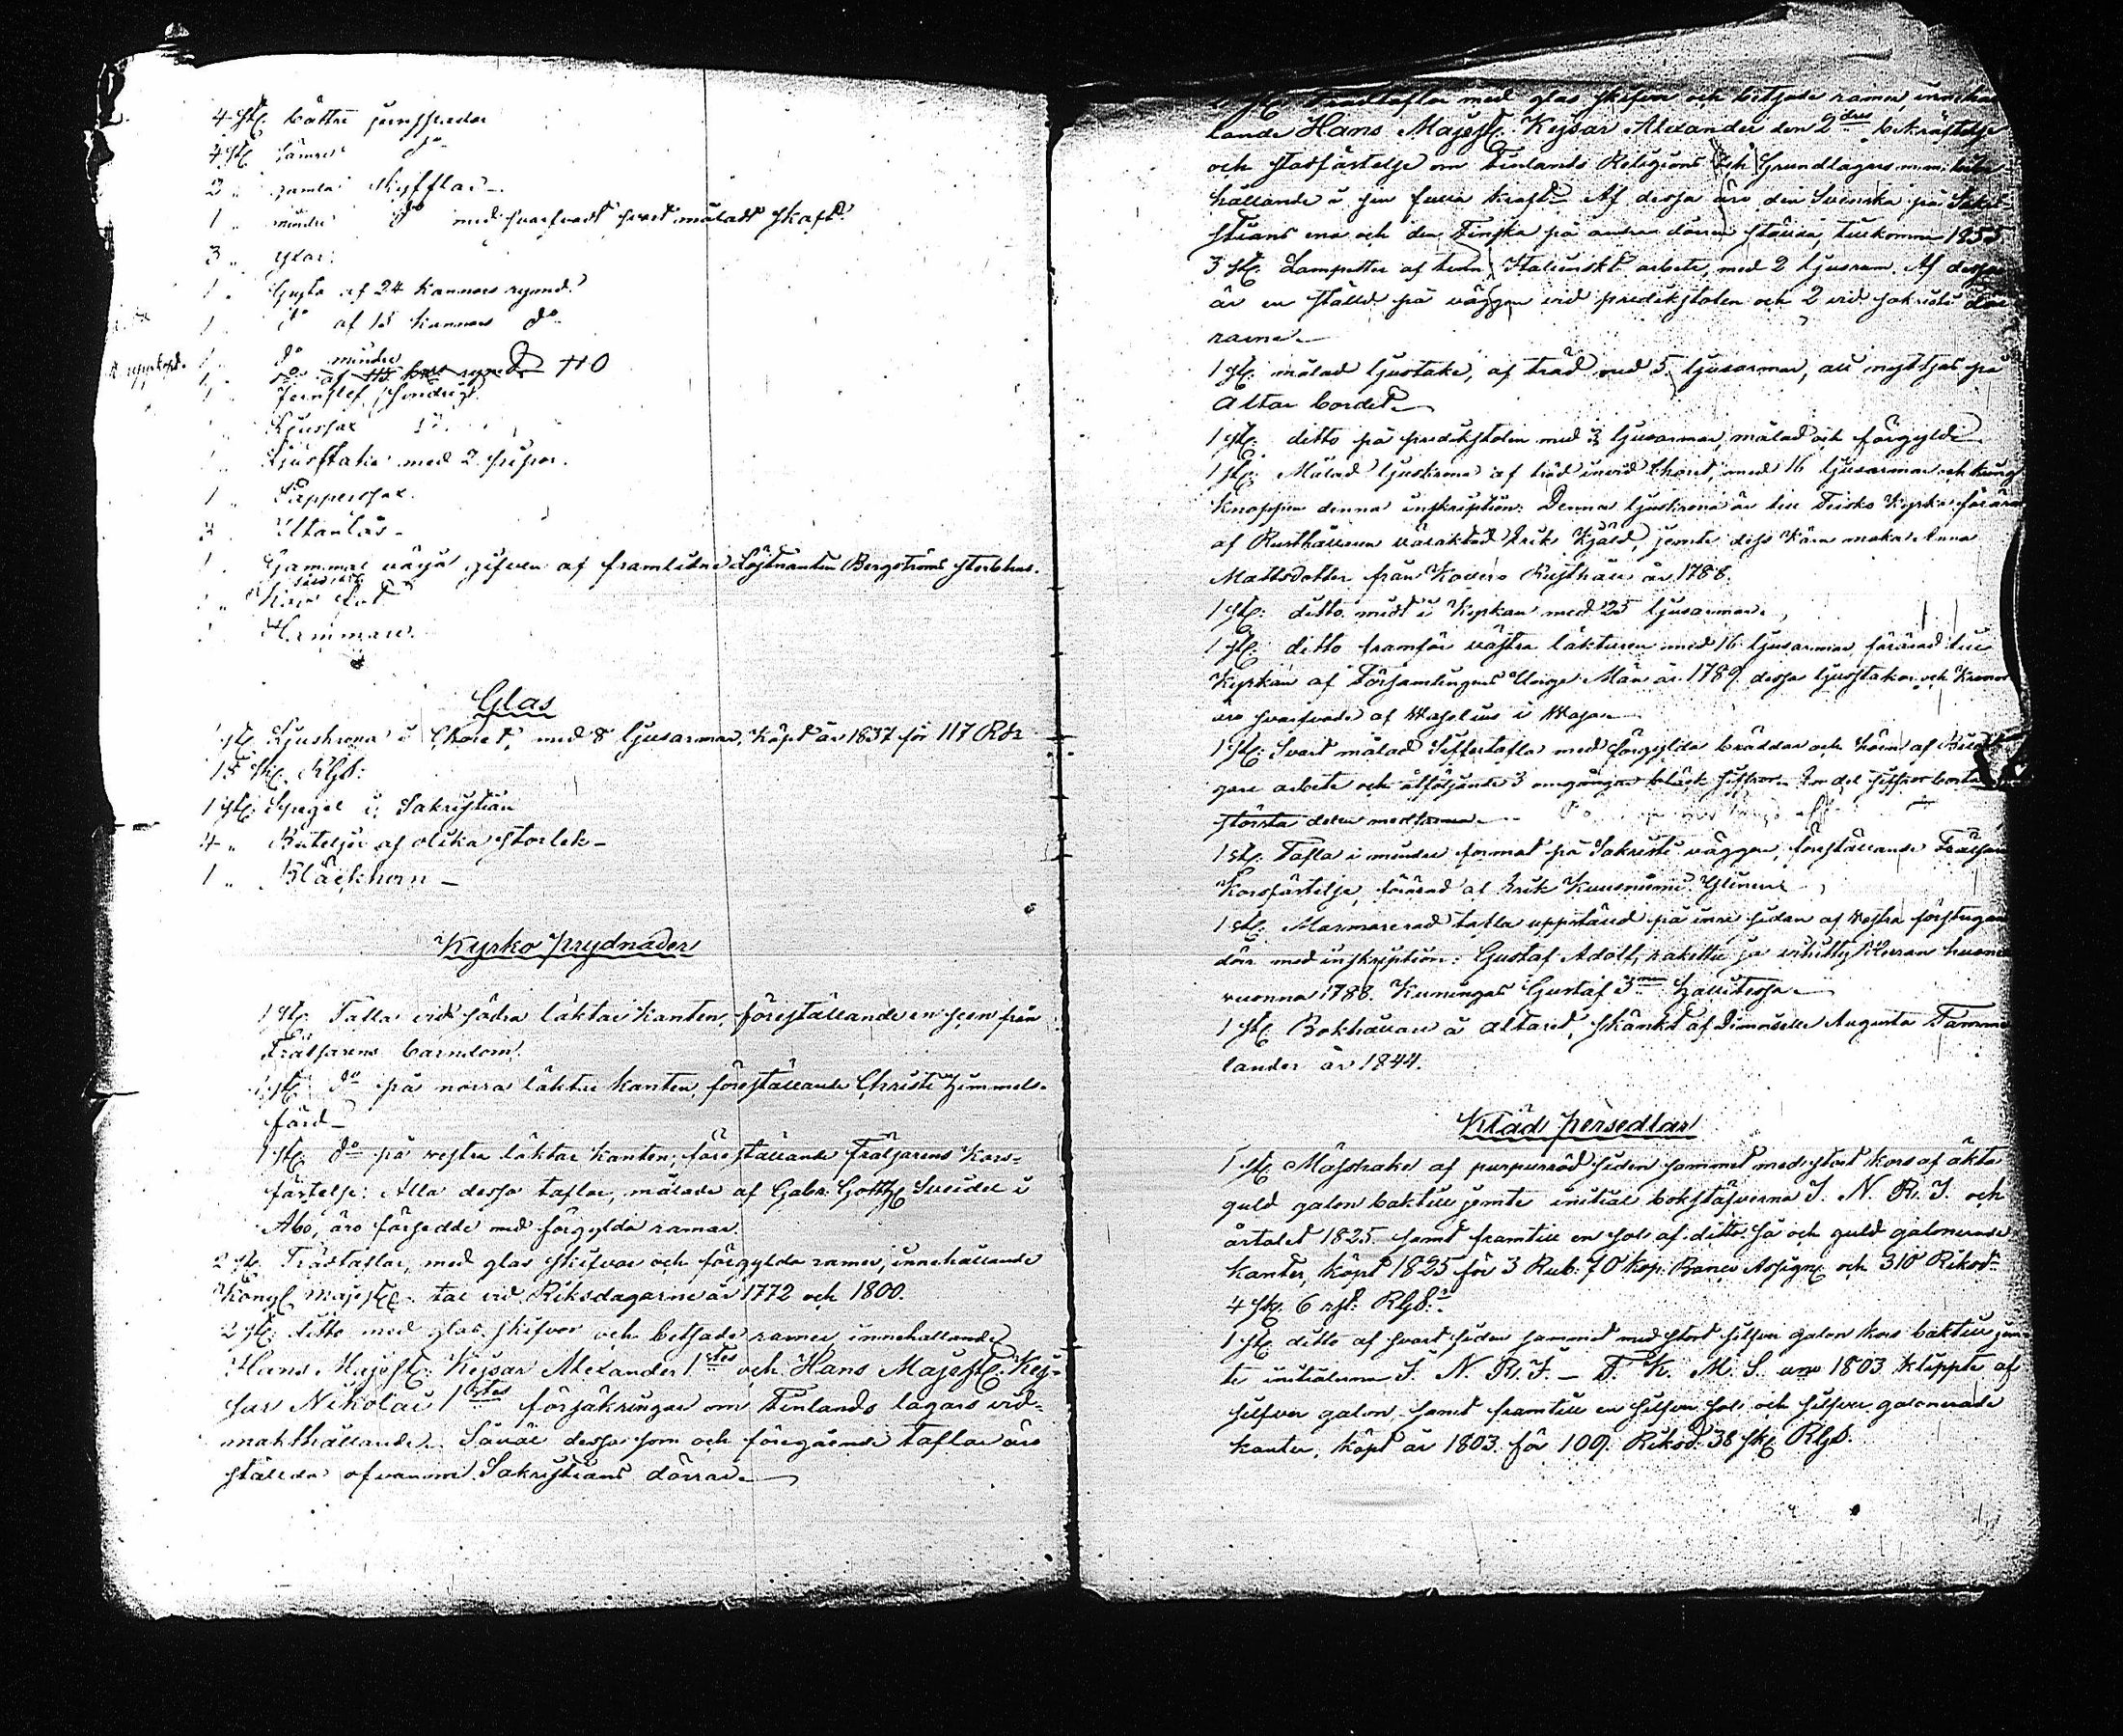 4 st. bättre jernspadar
4 st. sämre do
2 " gamla skyfflar
1 " mindre do med svarfvadt svart måladt skaft
3 " yxor
1 " Gryta af 24 kannors rymd
1 " do af 18 kannors do
1 " do mindre
1 " Jernslef, sönderig
" Ljussax do
" Ljusstake med 2 pipor.
1 " Papperssax.
3 " Utanlås
1 " Gammal värja gifven af framlidne Löjtnanten Bergströms sterbhus.
" Hammare.
Glas
1 st. Ljuskrona i Choret, med 8 ljusarmar, köpt år 1837 för 117 Rdr
15 sk. RgS:
1 st. Spegel i Sakristian
4 " Buteljer af olika storlek
1 " Bläckhorn
Kyrko prydnader
1 st. Tafla vid södra läktar kanten, föreställande en scen från
Frälsarens barndom.
1 st. do på norra läktar kanten, föreställande Christi Himmels-
färd
1 st. do på vestra läktar kanten, föreställande Frälsarens Kors-
fästelse. Alla dessa taflor, målade af Gabr. Gotth. Sveidel i
Åbo, äro försedde med förgylda ramar.
2 st. Trätaflor, med glas skifvor och förgylda ramar, innehållande
Kongl. Majestts. tal vid Riksdagarne år 1772 och 1800.
2 st. ditto med glas skifvor och betsade ramar innehållande
Hans Majestts. Kejsar Alexander 1stes och Hans Majestts. Kej-
sar Nikolai 1stes försäkringar om Finlands lagars vid-
makthållande. Såväl dessa som och föregående taflor äro
ställda ofvanom Sakristians dörrar.
st. Trätaflor med glas skifvor och betsade ramar, innehål-
lande Hans Majestts. Kejsar Alexander den 2dres bekräftelse
och stadfästelse om Finlands Religions och Grundlagars
hållande i sin fulla kraft. Af dessa äro den Svenska på Sakri-
stians ena och den Finska på andra dörren ställda, tillkomne 1855
3 st. Lampetter af tenn, Italienskt arbete, med 2 ljusrum. Af dessa
är en ställd på väggen vid predikstolen och 2 vid sakristi dör-
rarne.
1 st. målad ljusstake, af träd med 5 ljusarmar, att nyttjas på
Altar bordet.
1 st. ditto på predikstolen med 3 ljusarmar, målad och förgyld.
1 st. Målad ljuskrona af träd invid Choret, med 16 ljusarmar och kring
Knappen denna inskription: Denna ljuskrona är till Teisko Kyrka förärad
af Rusthållaren välaktad Erik Kjäld, jemte dess kära maka Anna
Mattsdotter från Kovero Rusthåll år 1788.
1 st. ditto midt i Kyrkan med 25 ljusarmar.
1 st. ditto framför västra läktaren med 16 ljusarmar, förärad till
Kyrkan af Församlingens Unga Män år 1789 dessa ljusstakar och Kronor
äro svarfvade af Waselius i Wasa
1 st. Svart målad Siffertafla med förgylda bräddar och
gare arbete och åtföljande 3 omgångar bläck siffror. En del siffror borta
största delen medfarna.
1 st. Tafla i mindre format på Sakristi väggen, föreställande Frälsare
Korsfästelse, förärad af Erik Kuusniemi
1 st. Marmorerad tafla uppställd på inre sidan af vestra förstugans
dörr med inskription: Gustaf Adolf, rakettu ja vihitty Herran huone
vuonna 1788. Kuningas Gustaf 3men hallitessa
1 st. Bokhållare å altaret, skänkt af Dimoiselle Augusta Tamme-
lander år 1844.
Kläd persedlar
1 st. Mässhake af purpurröd siden sammet med stort kors af äkta
guld galon baktill jemte initial bokstäfverna J. N. R. J. och
årtalet 1825 samt framtill en sol af ditto så och guld galonerade
kanter, köpt 1825 för 3 Rub. 70 kop. Banco Assign. och 310 Riksd.
4 sk. 6 rst. RgS.
1 st. ditto af svart siden sammet med stort silfver galon kors baktill jem-
te initialerna J. N. R. J. – F. K. M. S. ano 1803 klippte af
silfver galon samt framtill en silfver sol och silfver galonerade
kanter, köpt år 1803 för 109 Riksd. 38 sk. RgS.